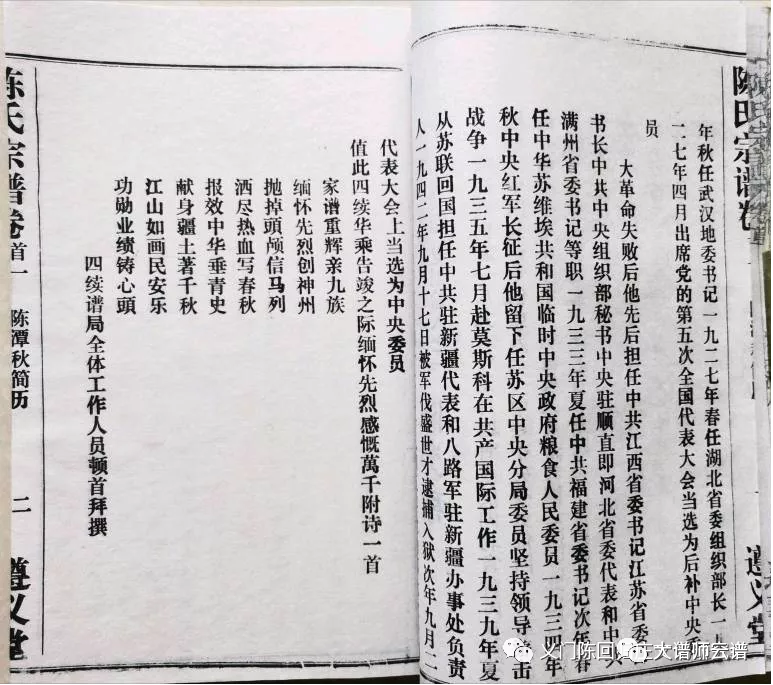 陈氏宗谱卷
遵义堂
年秋任武汉地委书记一九二七年春任湖北省委组织部长一九
二七年四月出席党的第五次全国代表大会当选为后补中央委
员
大革命失败后他先后担任中共江西省委书记江苏省委
书长中共中央组织部秘书中央驻顺直即河北省委代表和中共
满州省委书记等职一九三三年夏任中共福建省委书记次年春
任中华苏维埃共和国临时中央政府粮食人民委员一九三四年
秋中央红军长征后他留下任苏区中央分局委员坚持领导击
战争一九三五年七月赴莫斯科在共产国际工作一九三九年夏
从苏联回国担任中共驻新疆代表和八路军驻新疆办事处负责
人一九四二年九月十七日被军伐盛世才逮捕入狱次年九月二
代表大会上当选为中央委员
值此四续华乘告竣之际缅怀先烈感慨萬千附诗一首
家谱重辉亲九族
缅怀先烈创神州
抛掉頭颅信马列
洒尽热血写春秋
报效中华垂青史
献身疆土著千秋
江山如画民安乐
功勋业绩铸心頭
四续谱局全体工作人员顿首拜撰
陈氏宗谱卷首一 陈潭秋简历 二 遵义堂
义门陈回 庄大谱师云谱